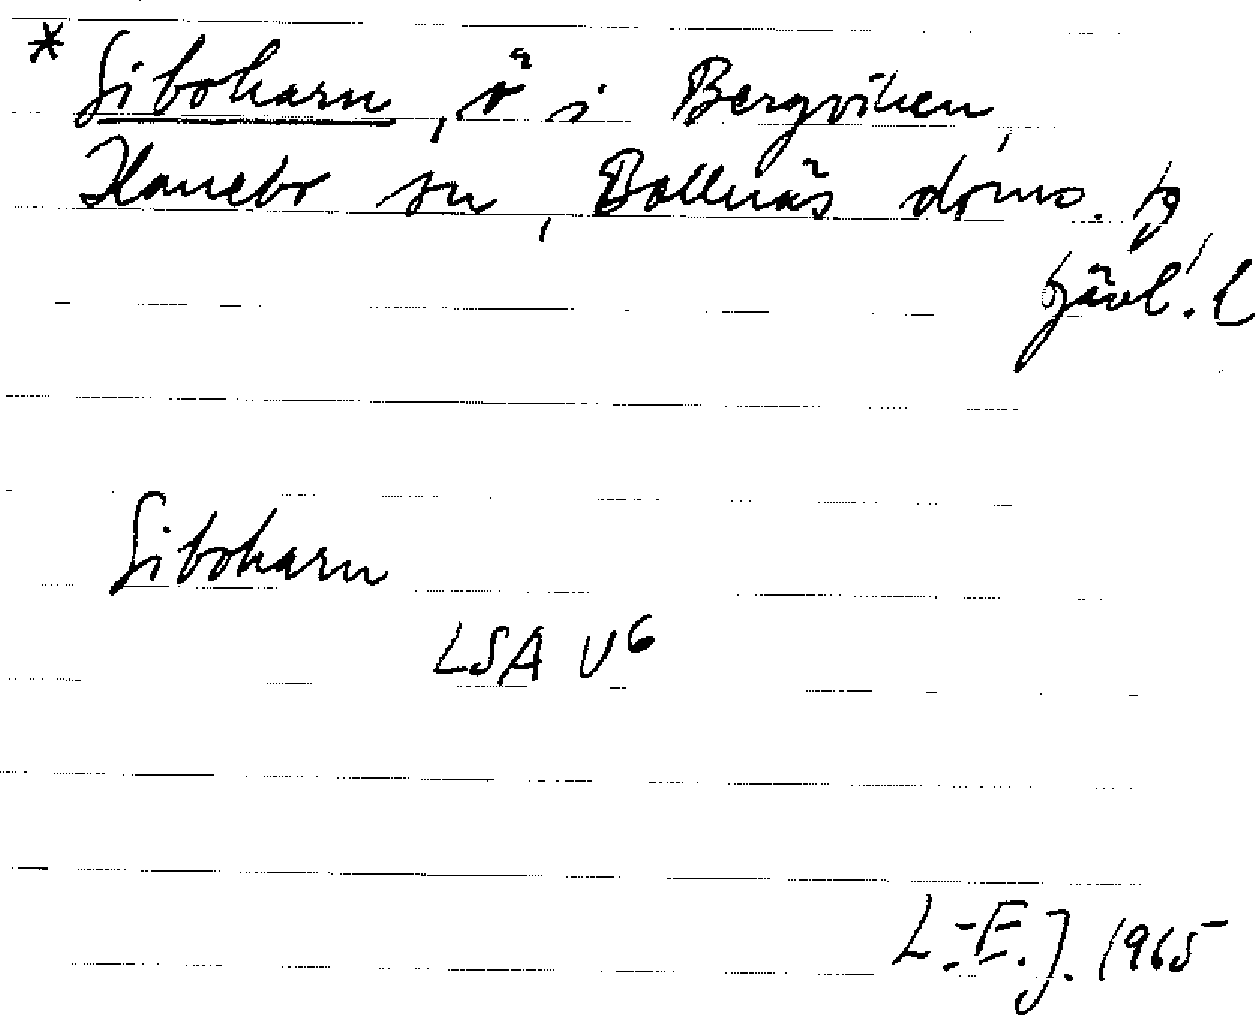 * Siboharn, ö i Bergviken,
Hanebo sn, Bollnäs doms. tg,
Gävl. l
Siboharn
LSA U6
L-E.J. 1965